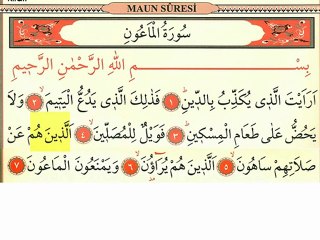 MAUN SÛRESİ
سُورَةُ الْمَاعُونِ
بِسْمِ اللهِ الرَّحْمٰنِ الرَّحِيمِ
اَرَاَيْتَ الَّذِى يُكَذِّبُ بِالدّ۪ينِۜ ﴿١﴾ فَذٰلِكَ الَّذِى يَدُعُّ الْيَت۪يمَۙ ﴿٢﴾ وَلَا
يَحُضُّ عَلٰى طَعَامِ الْمِسْك۪ينِۜ ﴿٣﴾ فَوَيْلٌ لِلْمُصَلّ۪ينَۙ ﴿٤﴾ اَلَّذ۪ينَ هُمْ عَنْ
صَلَاتِهِمْ سَاهُونَۙ ﴿٥﴾ اَلَّذ۪ينَ هُمْ يُرَٓاؤُ۫نَۙ ﴿٦﴾ وَيَمْنَعُونَ الْمَاعُونَ ﴿٧﴾